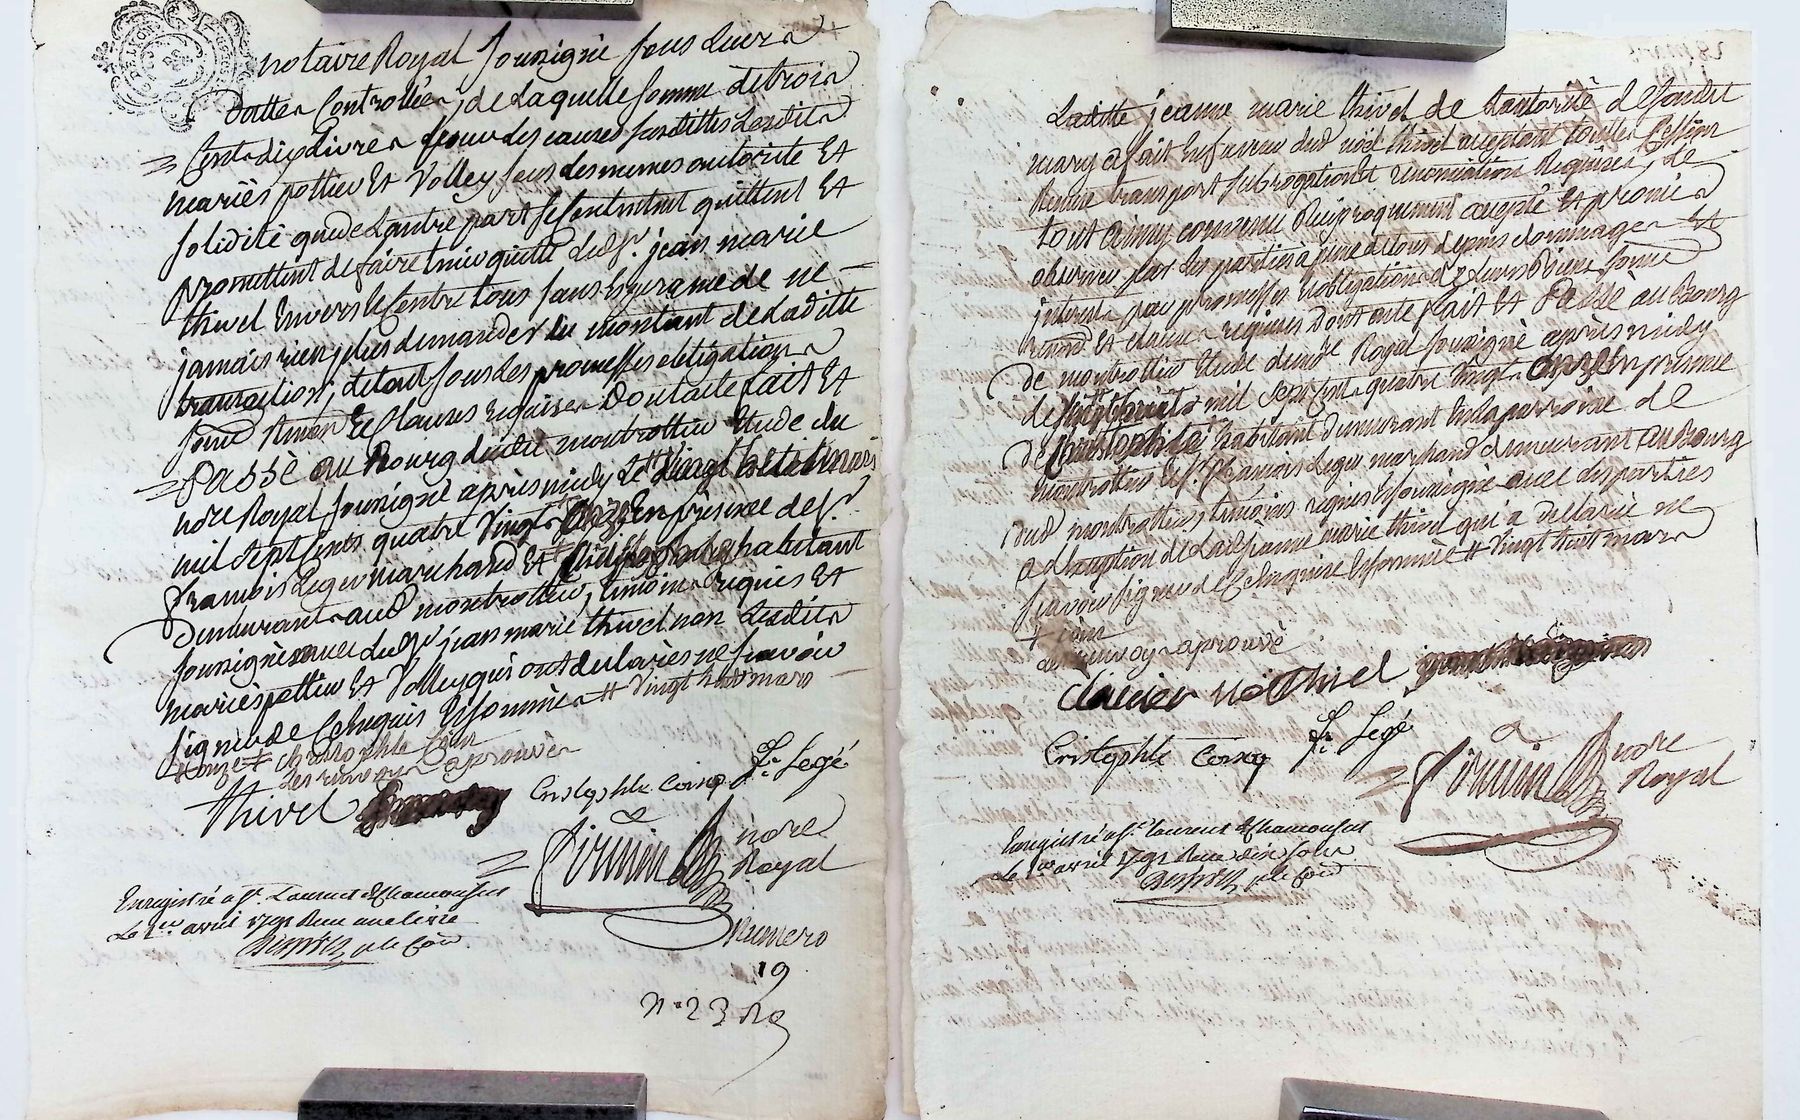 notaire Royal soussigné sous Leur
datte Controllée, de Laquelle somme de trois
Cents dix Livres pour des causes susdittes Lesdits
mariés pottieu Et Volley sous des mêmes autorité Et
solidité que de Lautre part se Contentent quittent Et
promettent de faire tenir quitte ledt Sr. jean marie
thivel Envers Et Contre tous sans Esperance de ne
jamais rien plus demander du montant de Laditte
transaction, detout sous Les promesses obligations
soumd Renon Et Clauses requises Dont acte fait Et
Passé au Bourg dudit montrottier Etude du
nore Royal soussigné après midy Le vingt huit mars
mil sept Cents quatre Vingt onze En présence de Sr.
françois Leger marchand Et habitant
demeurant aud montrottier, temoins requis Et
soussignés avec ledt Sr jean marie thivel non Lesdits
mariés pottieu Et Volley qui ont declarés ne sçavoir
signer de Ce Enquis Et sommés # Vingt huit mars
# onze # christophle
des renvoy approuvés
thivel Cristophle Fr. Legé
nore
Royal
Enregistré a St. Laurent de Chamousset
Le 1er avril 1791 Reçu une livre
Numero
19
N° 23
28 mars
1791
Laditte jeanne marie thivel de Lautorité de sondit
mary a fait En faveur dud noël thivel acceptant touttes Cession
Remise transport subrogation Et renonciation Requises, de
tout ainsy convenu Réciproquement accepté Et promis
observer par Les parties a peine de tous depens dommages Et
interets par promesses obligations de Leurs Biens soumd
renond Et clauses requises Dont acte fait Et Passé au Bourg
de montrottier Etude dud nore Royal soussigné après midy
de mil sept Cent quatre Vingt onze En présence
de habitant demeurant En La parroisse de
montrottier Et Sr. françois Leger marchand demeurant au Bourg
dud montrottier, temoins requis Et soussignés avec Les parties
a L'exception de Lad jeanne marie thivel qui a declaré ne
sçavoir signer de Ce Enquise Et sommée # Vingt huit mars
renvoy approuvé
noë Thivel
Cristophle Fr. Legé
nore
Royal
Enregistré a St. Laurent de Chamousset
Le 1er avril 1791 Reçu dix sols